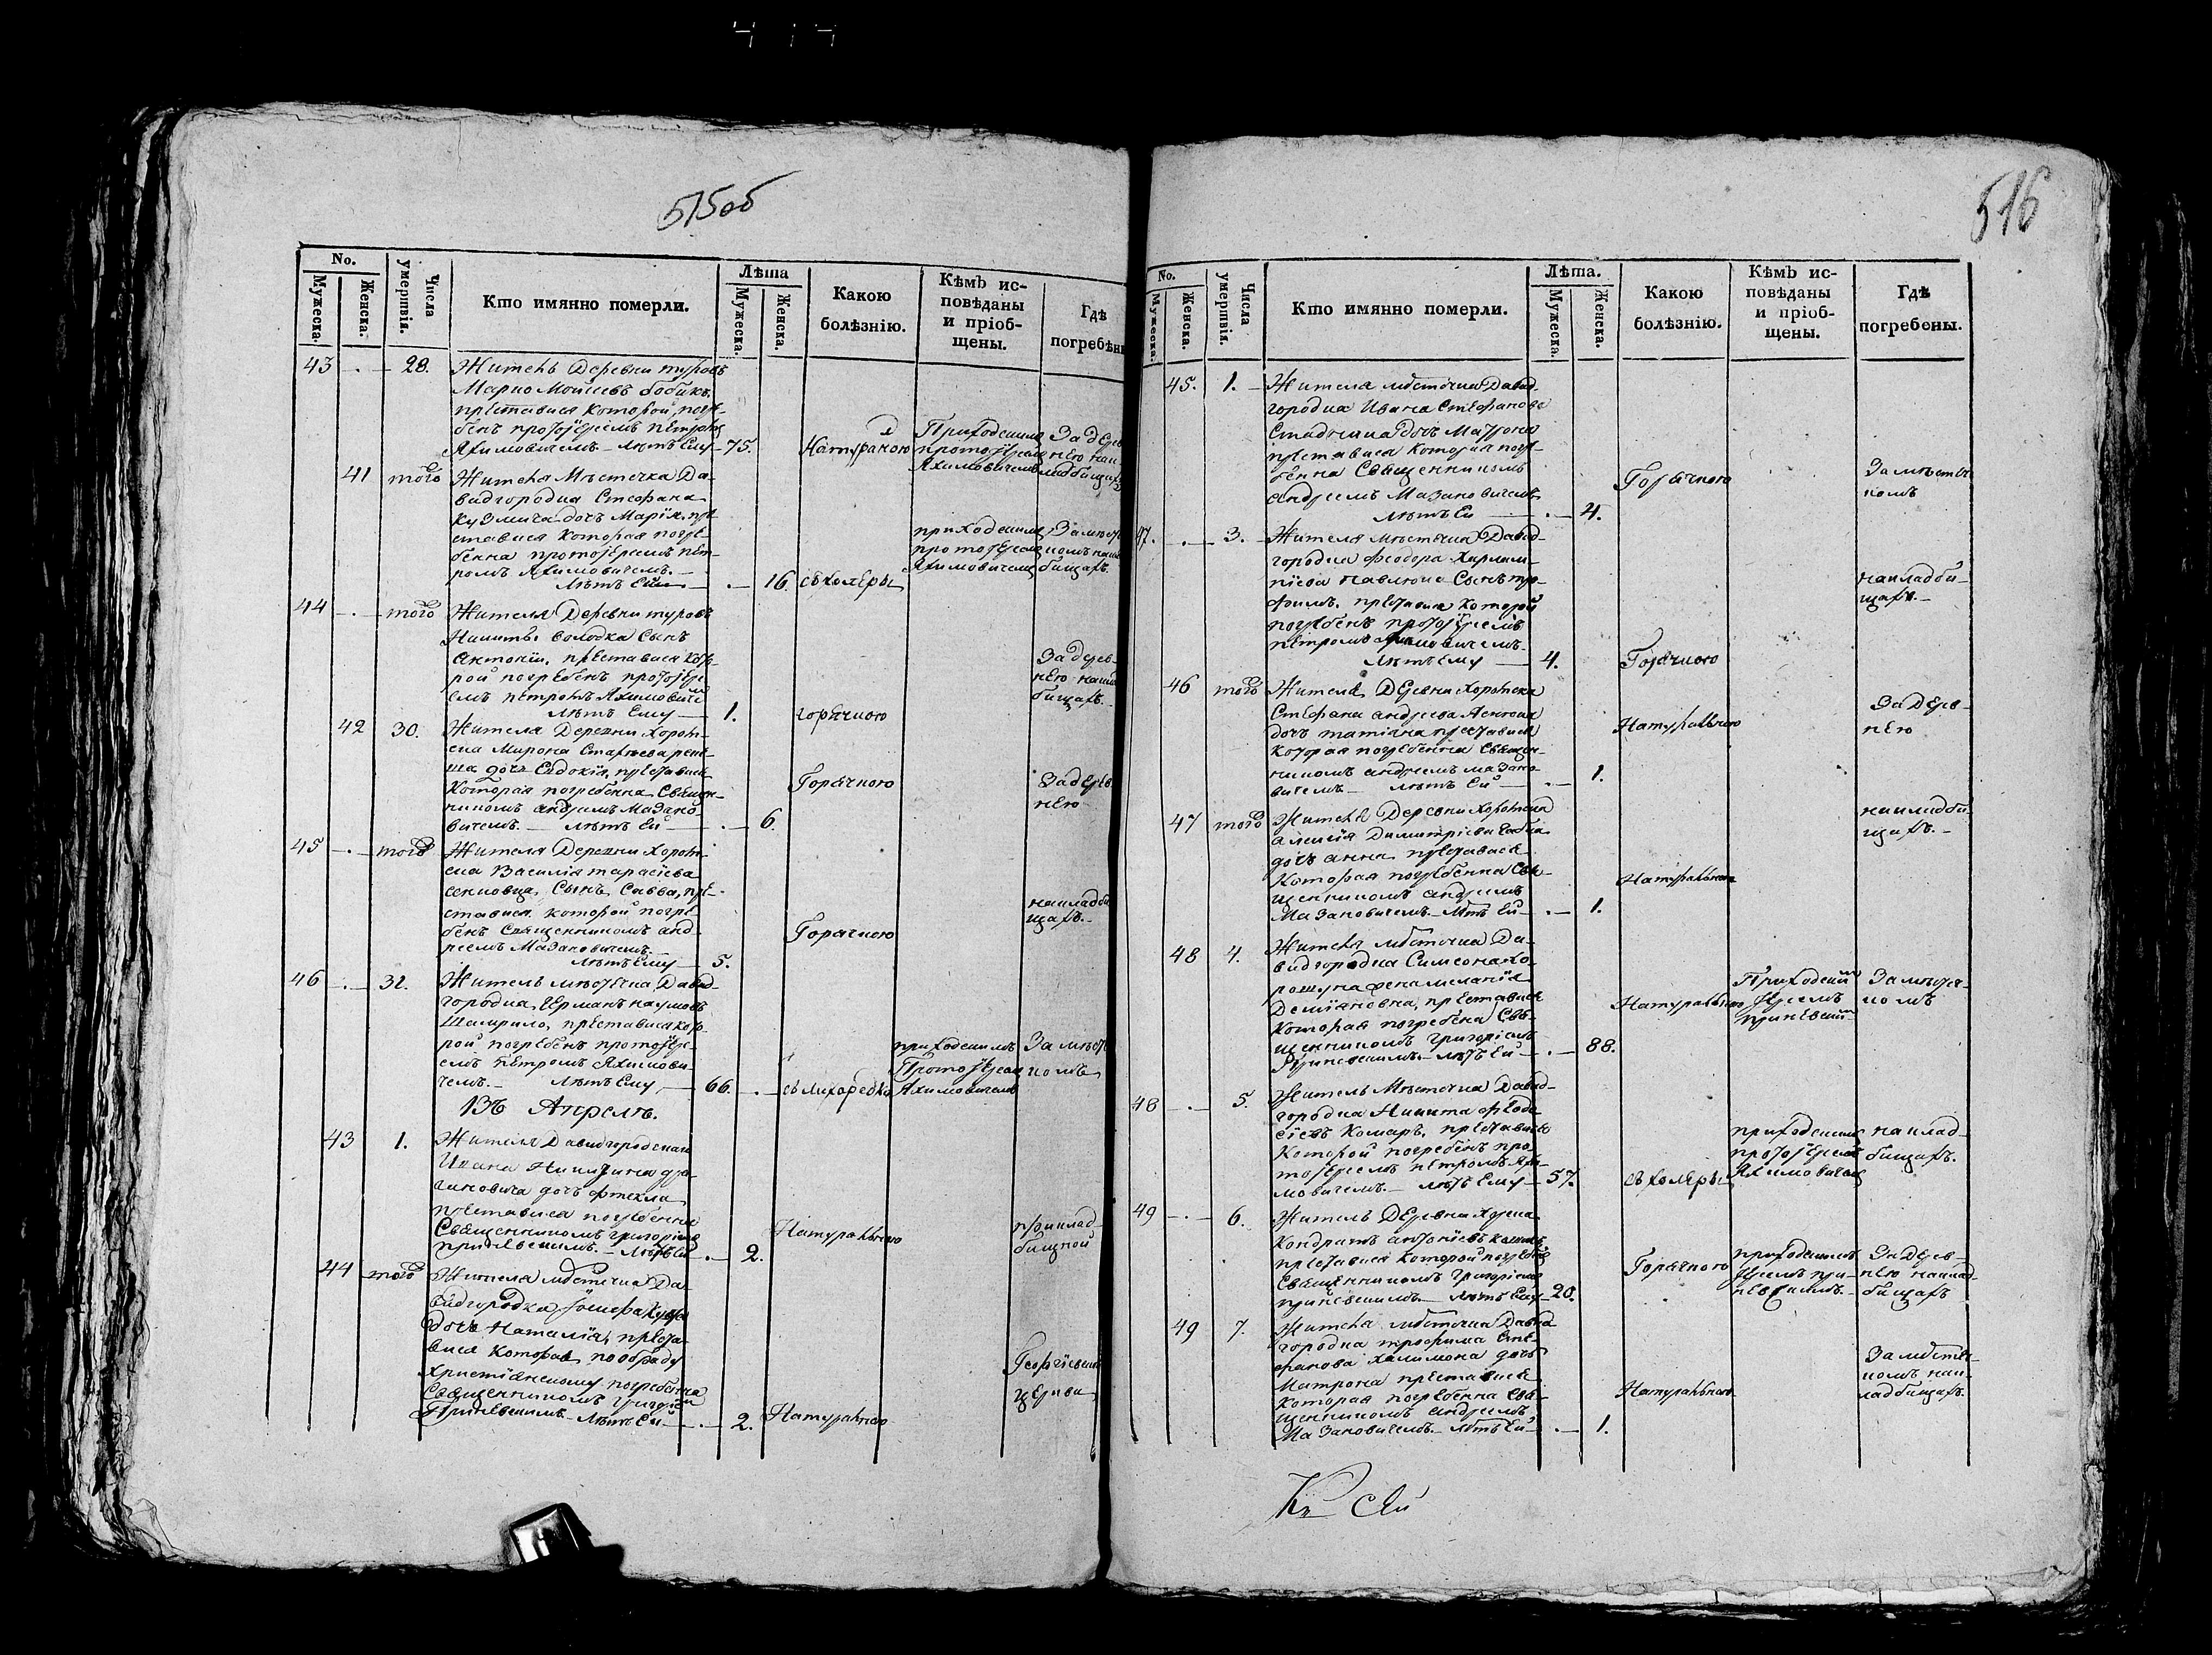 515об
No.
Лѣта
Мужеска.
Женска.
Числа умертвія.
Кто имянно померли.
Мужеска.
Женска.
Какою болѣзнію.
Кѣмъ исповѣданы и пріобщены.
Гдѣ погребѣны
43 28. Житель Деревни туровъ
Марко Моисеевъ бобикъ,
преставися которой, погре-
бенъ протоіереемъ петромъ
Яхимовичемъ. Лѣтъ Ему 75. Приходскимъ протоіереемъ Яхимовичемъ За дерев-
41 того Жителя Мѣстечка Да-
видгородка Стефана
Кузмича дочь Марія, пре-
ставися которая погре-
бенна протоіереемъ пет-
ромъ Яхимовичемъ.
Лѣтъ Ей 16. съ холеры приходскимъ протоіереемъ Яхимовичемъ
44 того Жителя Деревни туровъ
Никиты володка Сынъ
Антоній, преставися кото-
рой погребенъ протоіере-
емъ петромъ Яхимовиче
Лѣтъ Ему 1. горячкою За дерев-
нею
бищахъ.
42 30. Жителя Деревни Хоромс-
ка Мирона
дочь Евдокія, преставися
Которая погребенна Священ-
никомъ андреемъ Мазано-
вичемъ. Лѣтъ Ей 6. Горячкою За дерев-
нею
45 того Жителя Деревни Хоромс-
ка Василія тарасіева
сенковца, Сынъ, Савва, пре-
ставися которой погре-
бенъ Священникомъ анд-
реемъ Мазановичемъ.
Лѣтъ Ему 5. Горячкою на кладби-
щахъ.
46 31. Житель мѣстечка Давид-
городка, Германъ наумовъ
Шамрило, преставися кото-
рой погребенъ протоіере-
емъ Петромъ Яхимови-
чемъ. Лѣтъ Ему 66. съ лихорадки приходскимъ Протоіереемъ Яхимовичемъ За мѣстеч-
комъ
Въ Апрелѣ.
43 1. Жителя Давидгородскаго
Ивана Никитина
дочь Фтекла
преставися погребенна
Священникомъ григоріемъ
Лѣтъ Ей 2. Натуральною
бищной
44 того Жителя мѣстечка Да-
видгородка Іосифа
дочь Наталія, преста-
вися Которая по обряду
Христіянскому погребенна
Священникомъ григоріем
Лѣтъ Ей 2. Натуральною Георгіевской
церкви
516
No.
Лѣта.
Мужеска.
Женска.
Числа умертвія.
Кто имянно померли.
Мужеска.
Женска.
Какою болѣзнію.
Кѣмъ исповѣданы и пріобщены.
Гдѣ погребены.
45. 1. Жителя мѣстечка Давид-
городка Ивана Стефанова
Стадника дочь Матрона
преставися Которая погре-
бенна Священникомъ
андреемъ Мазановичемъ
Лѣтъ Ей 4. Горячкою За мѣстеч-
комъ
47. 3. Жителя мѣстечка Давид-
городка Феодора Харлам-
піева павлюка Сынъ тро-
фимъ, преставися Которой
погребенъ протоіереемъ
петромъ Яхимовичемъ.
Лѣтъ Ему 4. Горячкою на кладби-
щахъ.
46 того Жителя Деревни Хоромска
Стефана андреева
дочь татіяна преставися
которая погребенна Священ-
никомъ андреемъ мазано-
вичемъ. Лѣтъ Ей 1. Натуральною За дерев-
нею
47 того Жителя Деревни Хоромска
алексія Димитріева
дочь анна преставися
Которая погребенна Свя-
щенникомъ андреемъ
Мазановичемъ. Лѣтъ Ей 1. Натуральною на кладби-
щахъ.
48 4. Жителя мѣстечка Да-
видгородка Симеона Хо-
рошуна жена меланія
Деміяновна, преставися
Которая погребена Свя-
щенникомъ Григоріемъ
Лѣтъ Ей 88. Натуральною Приходскимъ Іереемъ За мѣстеч-
комъ
48 5. Житель Мѣстечка Давид-
городка Никита Феодо-
сіевъ Комаръ, преставися
Которой погребенъ про-
тоіереемъ петромъ Яхи-
мовичемъ. Лѣтъ Ему 57. съ холеры приходскимъ протоіереемъ Яхимовичемъ на клад-
бищахъ.
49 6. Житель Деревни
Кондратъ антоніевъ
преставися которой погребенъ
Священникомъ григоріемъ
Лѣтъ Ему 20. Горячкою приходскимъ Іереемъ За дерев-
нею на клад-
бищахъ
49 7. Жителя мѣстечка Давид-
городка трофима Сте-
фанова Халимона дочь
Матрона преставися
которая погребенна Свя-
щенникомъ андреемъ
Мазановичемъ. Лѣтъ Ей 1. Натуральною За мѣстеч-
комъ на к-
ладбищахъ.